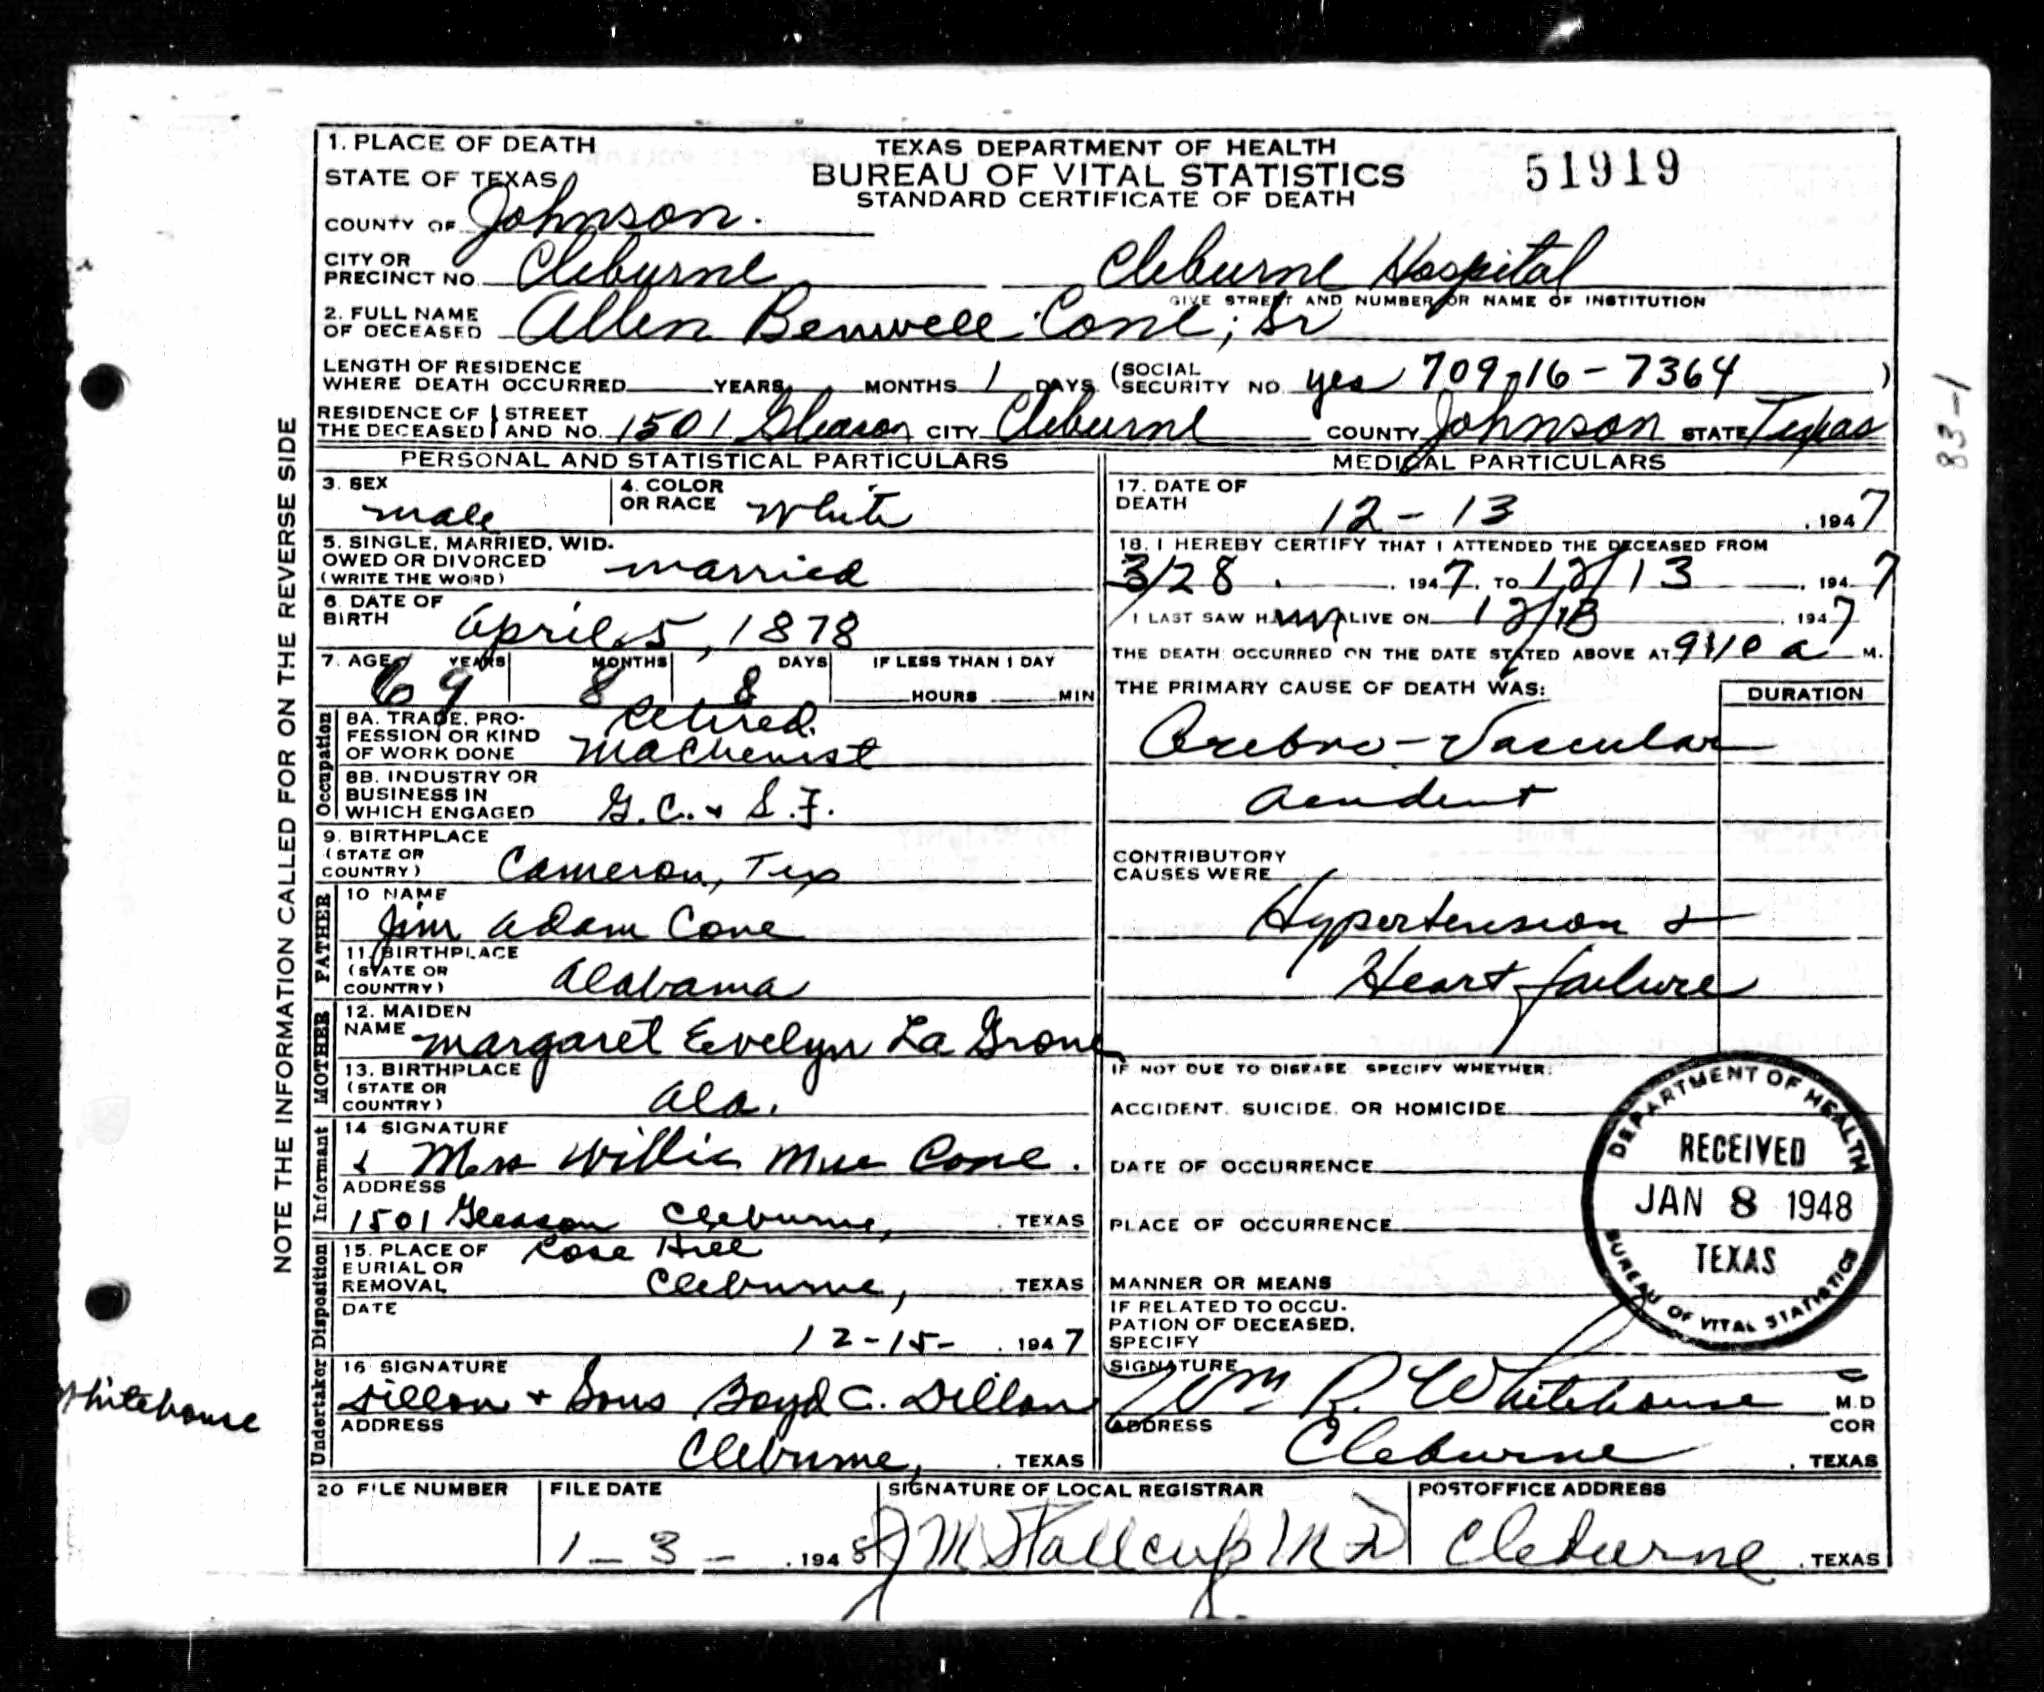 1. PLACE OF DEATH
STATE OF TEXAS
TEXAS DEPARTMENT OF HEALTH
BUREAU OF VITAL STATISTICS
STANDARD CERTIFICATE OF DEATH
51919
COUNTY OF Johnson.
CITY OR PRECINCT NO. Cleburne Cleburne Hospital
GIVE STREET AND NUMBER OR NAME OF INSTITUTION
2. FULL NAME OF DECEASED Allen Benwell Cone, Sr
LENGTH OF RESIDENCE WHERE DEATH OCCURRED YEARS MONTHS 1 DAYS (SOCIAL SECURITY NO. yes 709-16-7364 )
RESIDENCE OF THE DECEASED STREET AND NO. 1501 Gleason CITY Cleburne COUNTY Johnson STATE Texas
83-1
NOTE THE INFORMATION CALLED FOR ON THE REVERSE SIDE
PERSONAL AND STATISTICAL PARTICULARS
3. SEX male
4. COLOR OR RACE White
5. SINGLE, MARRIED, WIDOWED OR DIVORCED (WRITE THE WORD) married
6. DATE OF BIRTH April 5, 1878
7. AGE YEARS MONTHS DAYS IF LESS THAN 1 DAY
69 8 8 HOURS MIN
Occupation
8A. TRADE, PROFESSION OR KIND OF WORK DONE Retired. Machenist
8B. INDUSTRY OR BUSINESS IN WHICH ENGAGED G.C. & S.F.
9. BIRTHPLACE (STATE OR COUNTRY) Cameron, Tex
FATHER
10 NAME
Jim Adam Cone
11. BIRTHPLACE (STATE OR COUNTRY) Alabama
MOTHER
12. MAIDEN NAME Margaret Evelyn La Grone
13. BIRTHPLACE (STATE OR COUNTRY) Ala.
Informant
14 SIGNATURE
Mrs Willie Mae Cone.
ADDRESS
1501 Gleason Cleburne, TEXAS
Undertaker Disposition
15. PLACE OF BURIAL OR REMOVAL Rose Hill
Cleburne, TEXAS
DATE
12-15- , 1947
16 SIGNATURE
Dillon & Sons Boyd C. Dillon
ADDRESS
Cleburne, TEXAS
MEDICAL PARTICULARS
17. DATE OF DEATH 12-13 , 1947
18. I HEREBY CERTIFY THAT I ATTENDED THE DECEASED FROM
3/28 , 1947, TO 12/13 , 1947
I LAST SAW H im ALIVE ON 12/13 , 1947
THE DEATH OCCURRED ON THE DATE STATED ABOVE AT 9:10 a M.
THE PRIMARY CAUSE OF DEATH WAS: DURATION
Cerebro-Vascular
accident
CONTRIBUTORY CAUSES WERE
Hypertension &
Heart failure
IF NOT DUE TO DISEASE SPECIFY WHETHER:
ACCIDENT, SUICIDE, OR HOMICIDE
DATE OF OCCURRENCE
PLACE OF OCCURRENCE
MANNER OR MEANS
IF RELATED TO OCCUPATION OF DECEASED, SPECIFY
DEPARTMENT OF HEALTH
RECEIVED
JAN 8 1948
TEXAS
BUREAU OF VITAL STATISTICS
SIGNATURE
Wm R. Whitehouse M.D
COR
ADDRESS
Cleburne , TEXAS
Whitehouse
20 FILE NUMBER FILE DATE SIGNATURE OF LOCAL REGISTRAR POSTOFFICE ADDRESS
1-3- , 1948 J M Stallcup MD Cleburne , TEXAS